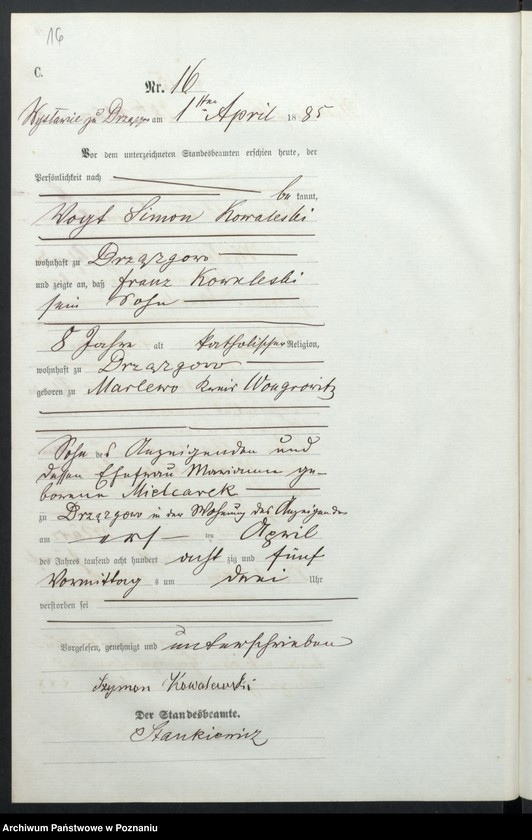 16
C.
Nr. 16
zu Drzązgowo am 1ten April 1885
Vor dem unterzeichneten Standesbeamten erschien heute, der
Persönlichkeit nach
be kannt,
Vogt Simon Kowaleski
wohnhaft zu Drzązgowo
und zeigte an, daß Franz Kowaleski
sein Sohn
8 Jahre alt katholischer Religion,
wohnhaft zu Drzązgowo
geboren zu Marlewo Kreis Wongrowitz
Sohn des Anzeigenden und
dessen Ehefrau Marianna ge-
borene Mielcarek
zu Drzązgowo in der Wohnung des Anzeigenden
am ersten April
des Jahres tausend acht hundert acht zig und fünf
Vormittag s um drei Uhr
verstorben sei
Vorgelesen, genehmigt und unterschrieben
Szymon Kowalewski
Der Standesbeamte.
Stankiewicz
Archiwum Państwowe w Poznaniu